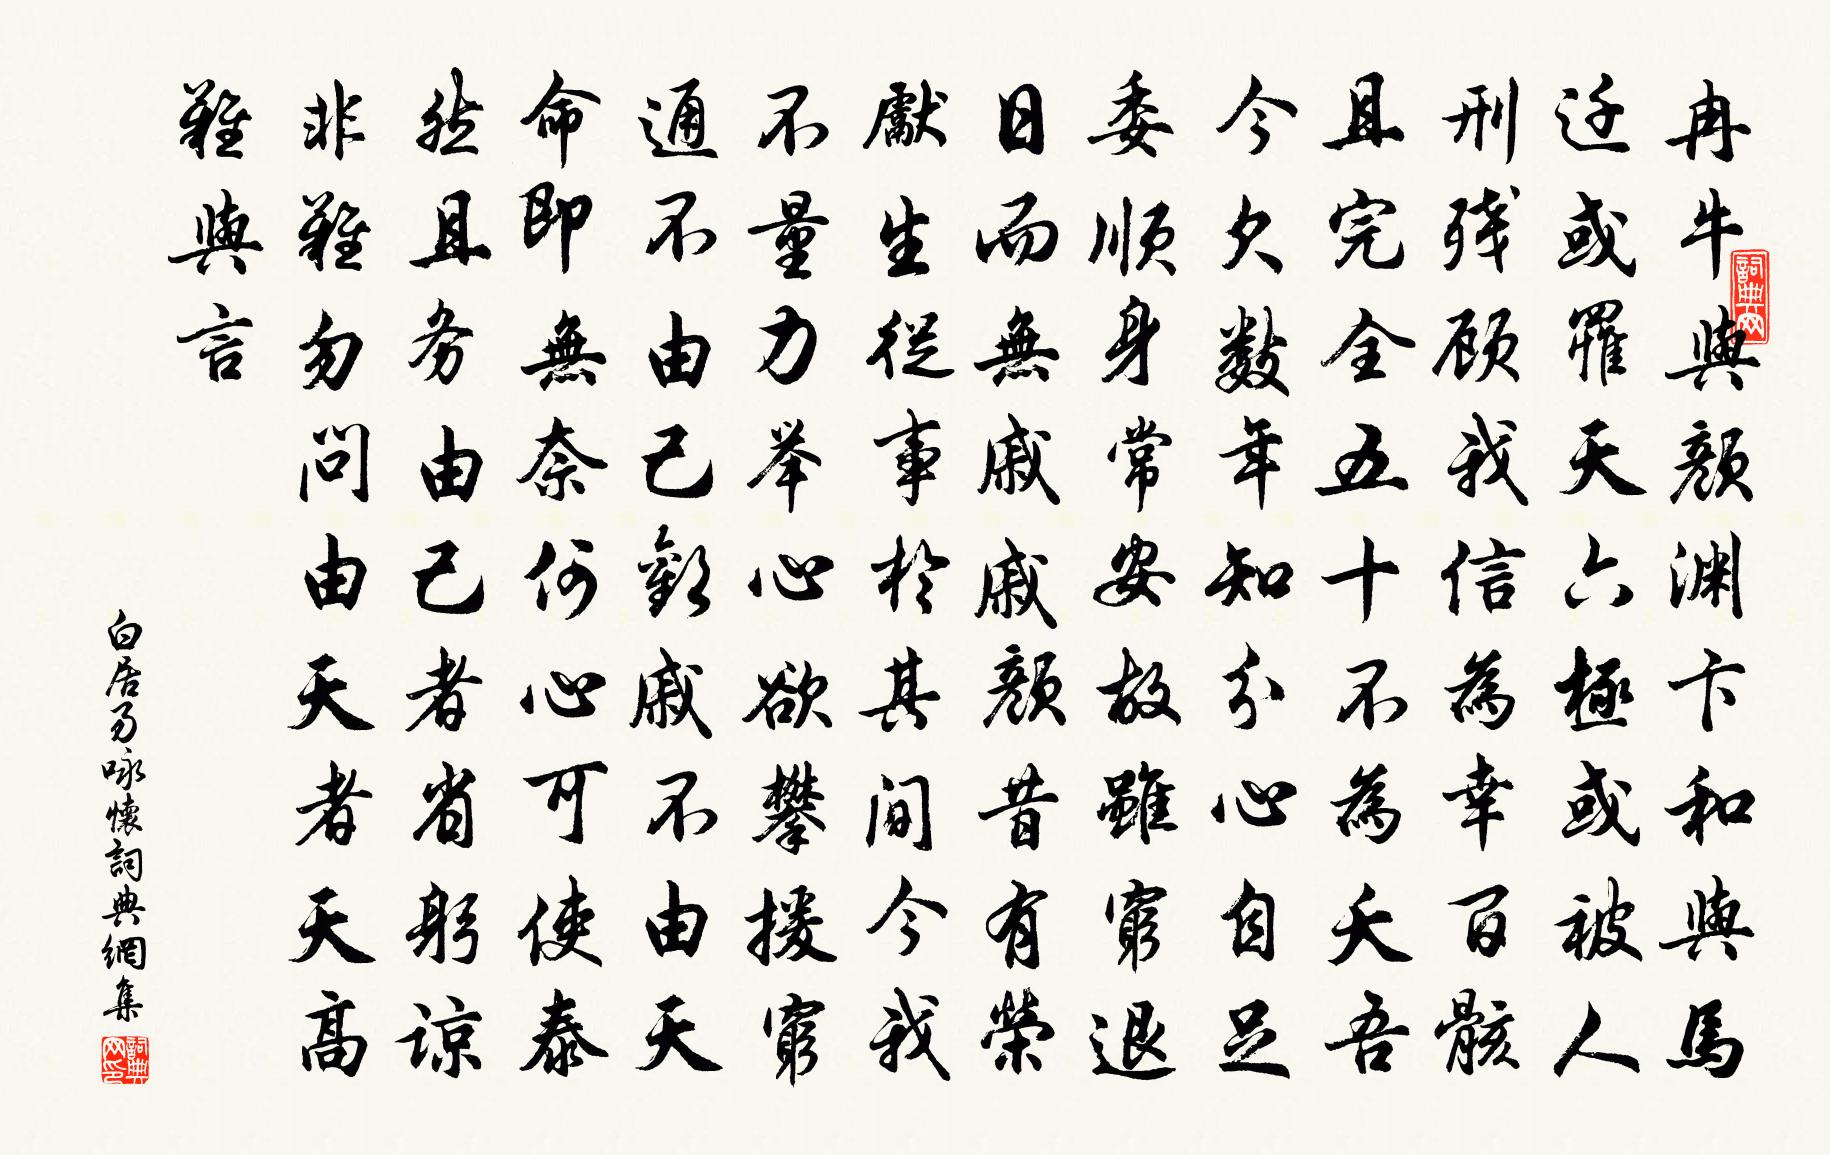 冉牛與顏渊卞和與馬
迁或罹天六極或被人
刑残顾我信為幸百骸
且完全五十不為夭吾
今欠数年知分心自足
委顺身常安故雖窮退
日而無戚戚顏昔有榮
獻生從事於其間今我
不量力举心欲攀援窮
通不由己歡戚不由天
命即無奈何心可使泰
然且务由己者省躬谅
非難勿問由天者天高
難與言
白居易咏懷詞典網集
詞典网
詞典网印